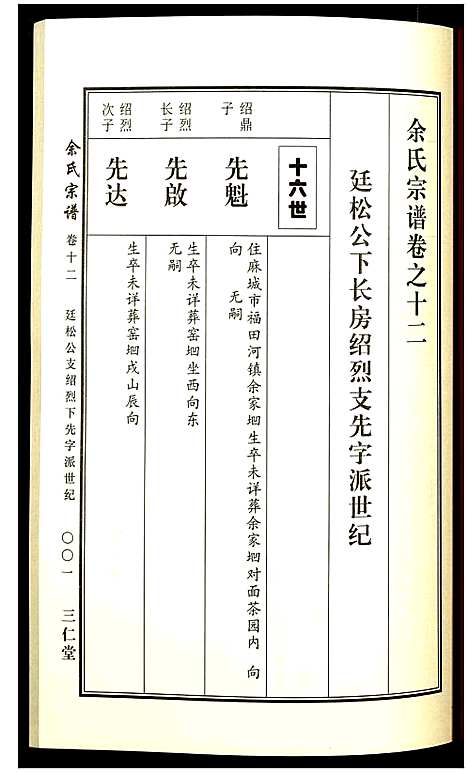 余氏宗谱卷之十二
廷松公下长房绍烈支先字派世纪
十六世
绍鼎
子
先魁
住麻城市福田河镇余家垇生卒未详葬余家垇对面茶园内 向
向 无嗣
绍烈
长子
先啟
生卒未详葬窑垇坐西向东
无嗣
绍烈
次子
先达
生卒未详葬窑垇戌山辰向
余氏宗谱 卷十二 廷松公支绍烈下先字派世纪 〇〇一 三仁堂